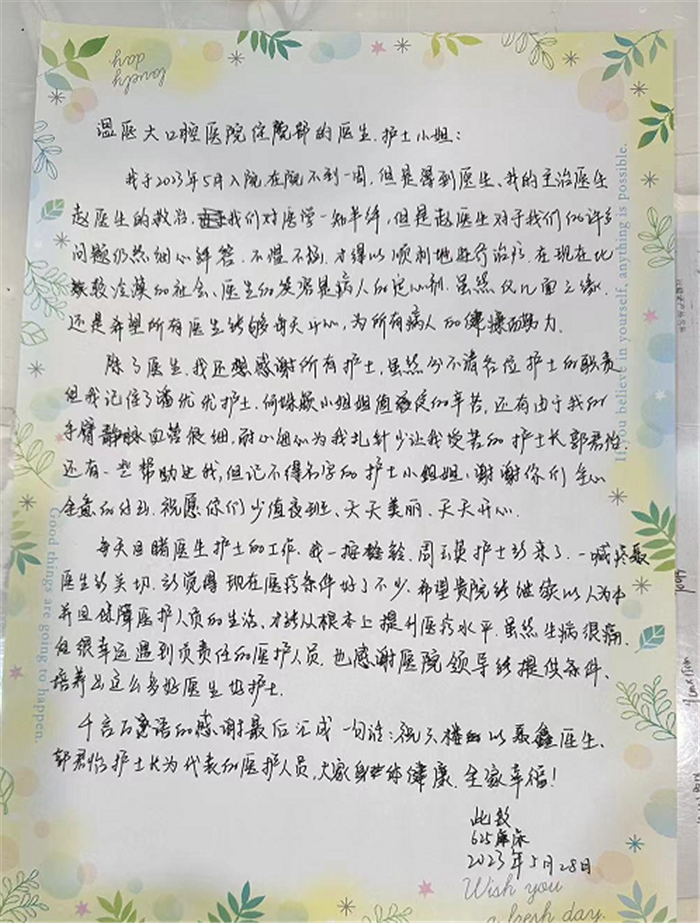 lovely
day.
温医大口腔医院住院部的医生.护士小姐：
我于2023年5月入院,在院不到一周,但是得到医生、我的主治医生
赵医生的救治,我们对医学一知半解,但是赵医生对于我们的许多
问题仍然细心解答.不愠不恼,才得以顺利地进行治疗.在现在比
较冷漠的社会、医生的笑容是病人的定心剂.虽然仅几面之缘.
还是希望所有医生能够每天开心,为所有病人的健康而努力.
除了医生.我还想感谢所有护士,虽然分不清各位护士的职责
但我记住了潘优优护士.何姝颖小姐姐值夜班的辛苦,还有由于我的
手臂静脉血管很细,耐心细心为我扎针少让我受苦的护士长郭君怡.
还有一些帮助过我,但记不得名字的护士小姐姐,谢谢你们全心
全意的付出.祝愿你们少值夜班、天天美丽、天天开心.
每天目睹医生护士的工作.我一按铃,周护士就来了.一喊聂
医生就关切.就觉得现在医疗条件好了不少.希望贵院能继续以人为本
并且保障医护人员的生活、才能从根本上提升医疗水平.虽然生病很痛、
但很幸运遇到负责任的医护人员.也感谢医院领导能提供条件、
培养出这么多好医生好护士.
千言万语的感谢最后汇成一句话：祝六楼以聂鑫医生、
郭君怡护士长为代表的医护人员,大家身体健康.全家幸福!
此致
625床
2023年5月28日
Wish you
a fresh day
If you believe in yourself, anything is possible.
Good things are going to happen.